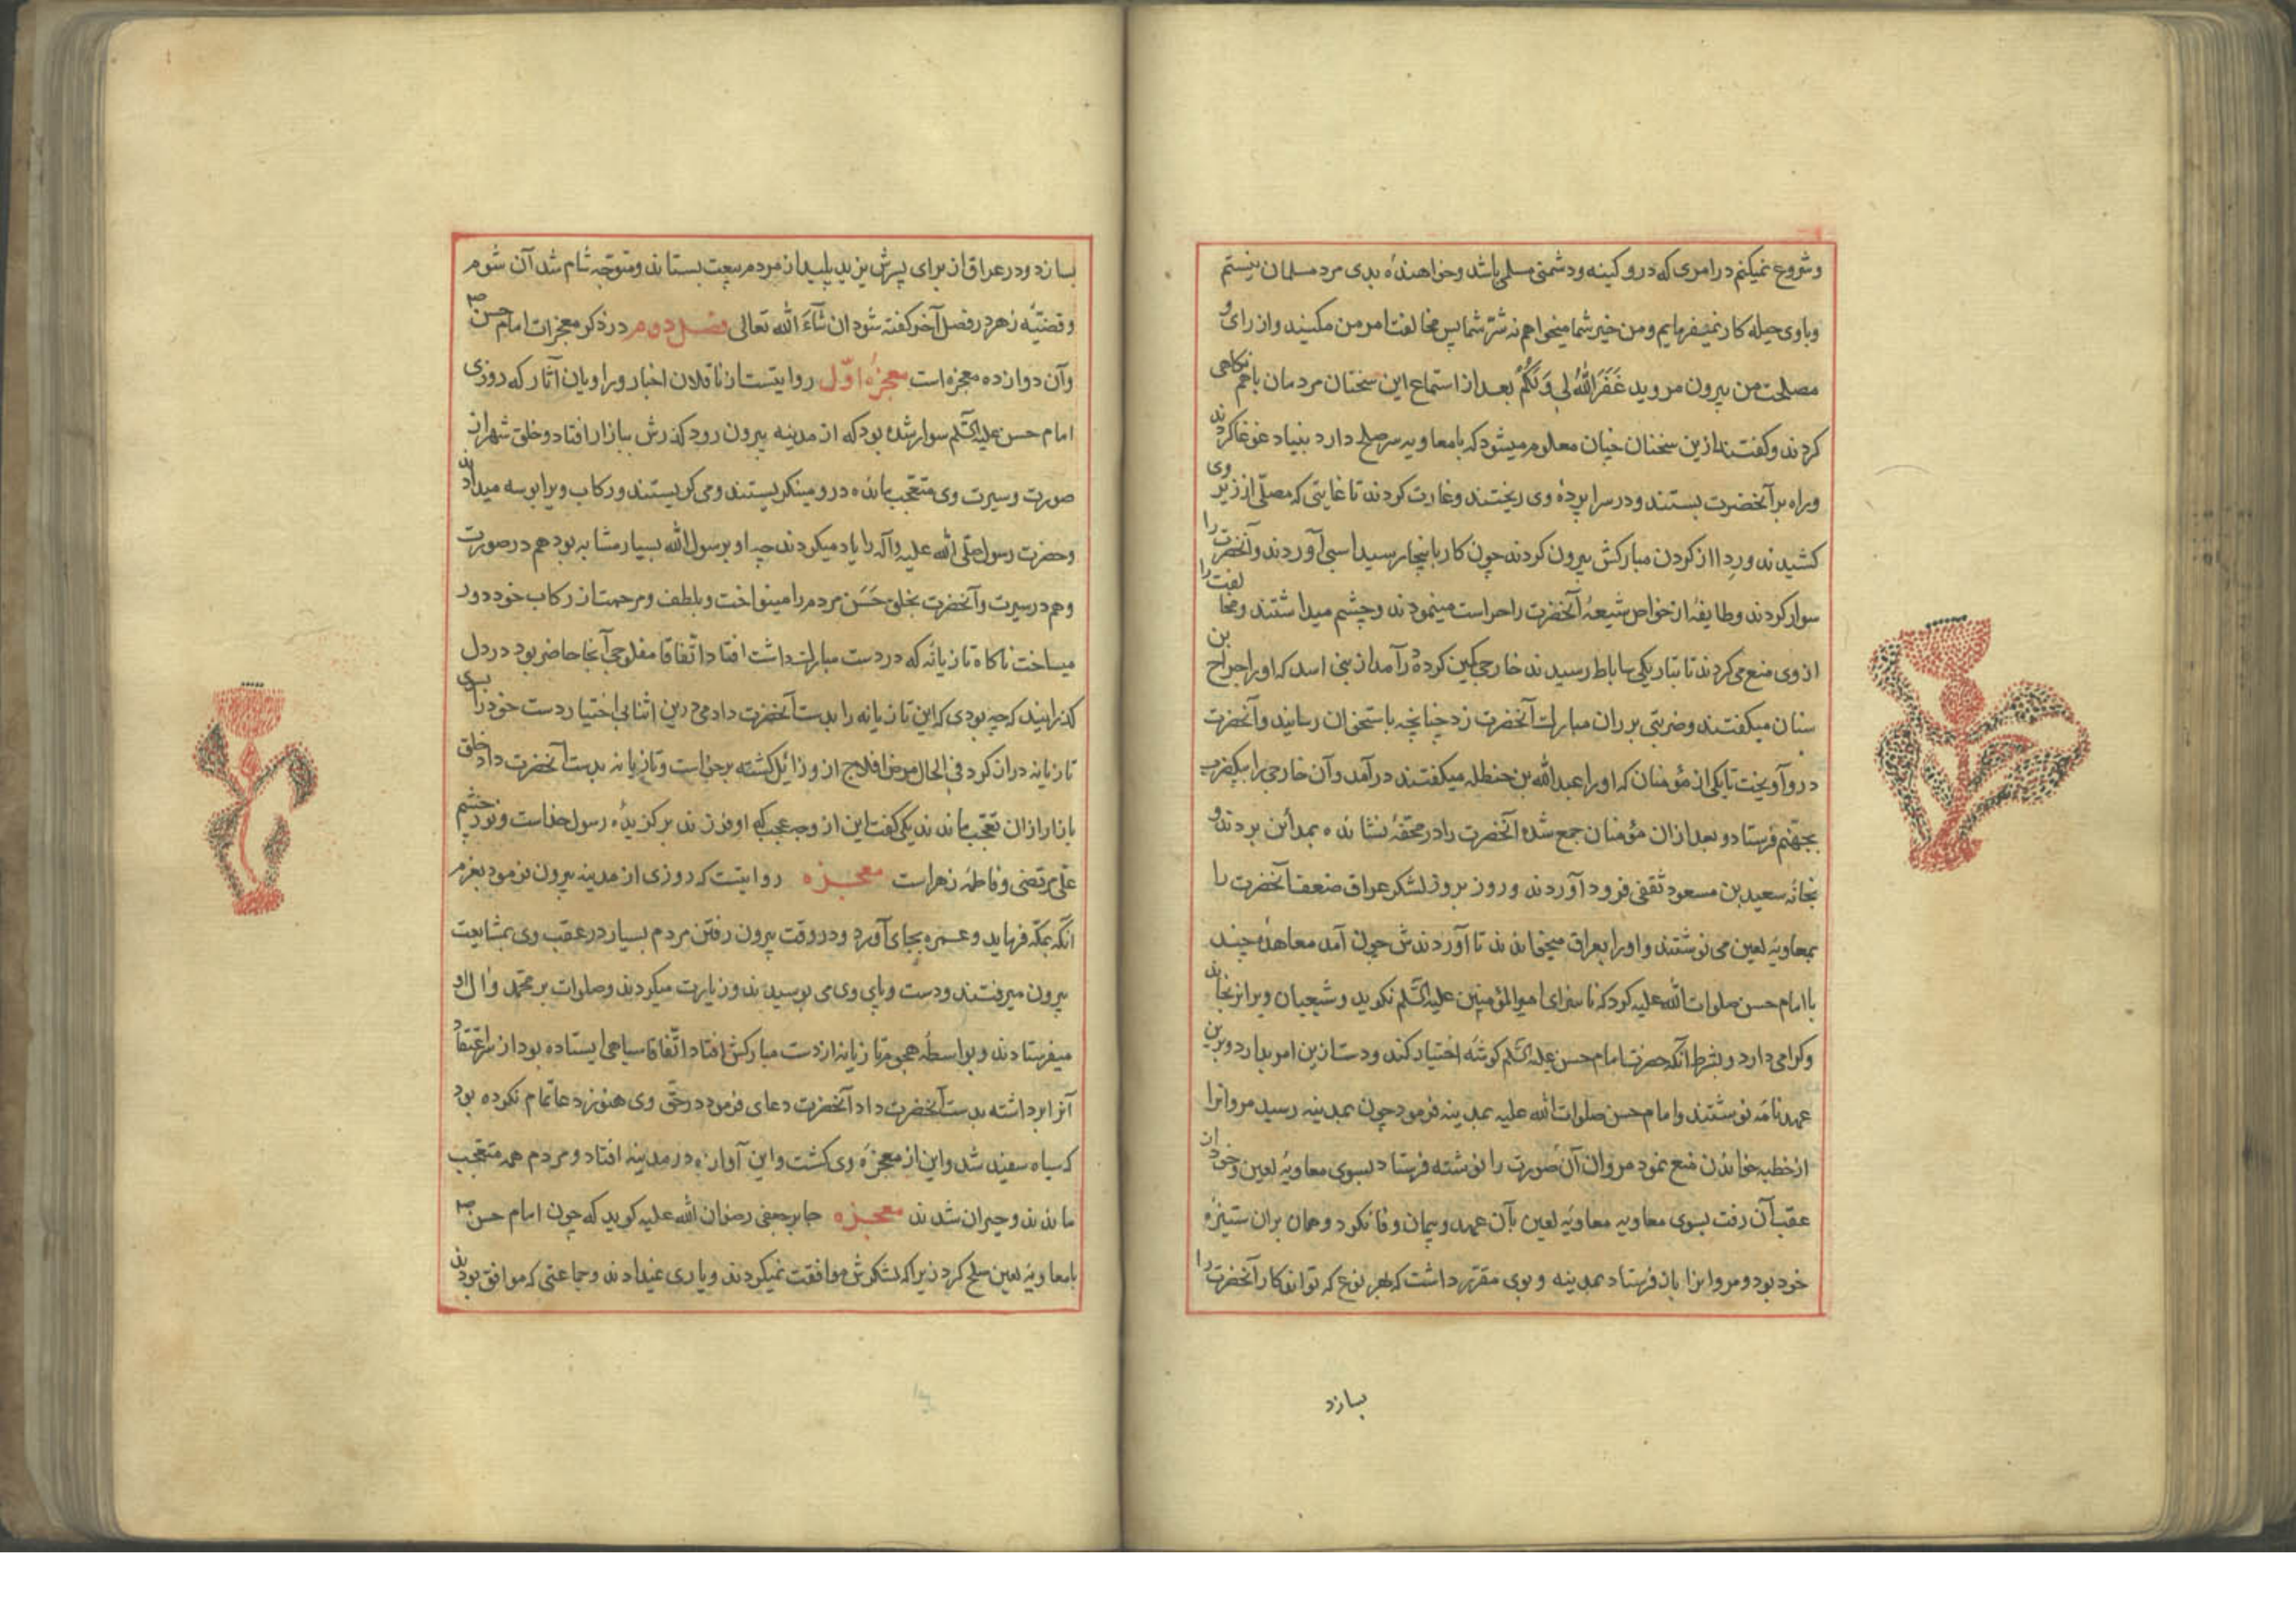 و شروع نمیکنم در امری که در و کینه و دشمنی مسلمی باشد و خواهندهٔ بدی مرد مسلمان نیستم
و با وی حیله کار نمیفرمایم و من خیر شما میخواهم نه شرّ شما پس مخالفت امر من مکنید و از رای و
مصلحت من بیرون مروید غَفَرَ اللهُ لِی وَلَکُمْ بعد از استماع این سخنان مردمان باهم نکاهی
کردند و کفتند ازین سخنان چنان معلوم میشود که با معاویه سر صلح دارد بنیاد غوغا کردند
و راه بر آنحضرت بستند و در سراپردهٔ وی ریختند و غارت کردند تا غایتی که مصلّی از زیر وی
کشیدند و ردا از کردن مبارکش بیرون کردند چون کار باینجا رسید اسبی آوردند و آنحضرت را
سوار کردند و طایفهٔ از خواص شیعهٔ آنحضرت را حراست مینمودند و چشم میداشتند و مخالفت را
از وی منع می کردند تا بتاریکی ساباط رسیدند خارجی کمین کرده در آمد از بنی اسد که او را جراح بن
سنان میکفتند و ضربتی بر ران مبارک آنحضرت زد چنانچه باستخوان رسانید و آنحضرت
در و آویخت تا یکی از مؤمنان که او را عبد الله بن حنظله میکفتند در آمد و آن خارجی را بیکضرب
بجهنم فرستاد و بعد از ان مؤمنان جمع شده آنحضرت را در محفهٔ نشانده بمدائن بردند و
بخانهٔ سعید بن مسعود ثقفی فرود آوردند و روز بروز لشکر عراق ضعف آنحضرت را
بمعاویهٔ لعین می نوشتند و او را بعراق میخواندند تا آوردندش چون آمد معاهدهٔ چند
با امام حسن صلوات الله علیه کرد که ناسزای امیر المؤمنین علیه السّلم نکوید و شیعیان ویرا نرنجاند
و کرامی دارد و بشرط آنکه حضرت امام حسن علیه السّلم کوشهٔ اختیار کند و دست ازین امر بدارد و برین
عهدنامه نوشتند و امام حسن صلوات الله علیه بمدینه فرمود چون بمدینه رسید مروانرا
از خطبه خواندن منع نمود مروان آن صورت را نوشته فرستاد بسوی معاویهٔ لعین و خود از ان
عقب آن رفت بسوی معاویه معاویهٔ لعین بآن عهد و پیمان وفا نکرد و همان بران ستیزهٔ
خود بود و مروانرا باز فرستاد بمدینه و بوی مقرّر داشت که بهر نوع که تواند کار آنحضرت را
بسازد
بسازد و در عراق از برای پسرش یزید پلید از مردم بیعت بستاند و متوجّه شام شد آن شوم
و قضیّهٔ زهر در فصل آخر کفته شود ان شآءَ الله تعالی فصل دوم در ذکر معجزات امام حسن ؏
و آن دوازده معجزه است معجزهٔ اوّل روایتست از ناقلان اخبار و راویان آثار که روزی
امام حسن علیه السّلم سوار شده بود که از مدینه بیرون رود کذرش ببازار افتاد و خلق شهر از
صورت و سیرت وی متعجّب مانده در و مینکریستند و می کریستند و رکاب ویرا بوسه میدادند
و حضرت رسول صلّی الله علیه و آله را یاد میکردند چه او برسول الله بسیار مشابه بود هم در صورت
و هم در سیرت و آنحضرت بخلق حَسَن مردم را مینواخت و بلطف و مرحمت از رکاب خود دور
میساخت ناکاه تازیانهٔ که در دست مبارک داشت افتاد اتّفاقا مفلوجی آنجا حاضر بود در دل
کذرانید که چه بودی که این تازیانه را بدست آنحضرت دادمی درین اثنا بی اختیار دست خود را بسوی
تازیانه دراز کرد فی الحال مرض افلاج از و زائل کشته برخاست و تازیانه بدست آنحضرت داد خلق
بازار از ان تعجّب ماندند یکی کفت این از وی چه عجب که او فرزند برکزیدهٔ رسول خداست و نور چشم
علی مرتضی و فاطمهٔ زهراست معجزه روایتست که روزی از مدینه بیرون فرمود بعزم
انکه بمکّه فرماید و عمره بجای آورد و در وقت بیرون رفتن مردم بسیار در عقب وی بمشایعت
بیرون میرفتند و دست و پای وی می بوسیدند و زیارت میکردند و صلوات بر محمّد و آل او
میفرستادند و بواسطهٔ هجوم تازیانه از دست مبارکش افتاد اتّفاقا سیاهی ایستاده بود از سر اعتقاد
آنرا برداشته بدست آنحضرت داد آنحضرت دعای فرمود در حقّ وی هنوز دعا تمام نکرده بود
که سیاه سفید شد و این از معجزهٔ وی کشت و این آوازه در مدینه افتاد و مردم همه متعجّب
ماندند و حیران شدند معجزه جابر جعفی رضوان الله علیه کوید که چون امام حسن ؏
با معاویهٔ لعین صلح کرد زیرا که لشکرش موافقت نمیکردند و یاری نمیدادند و جماعتی که موافق بودند